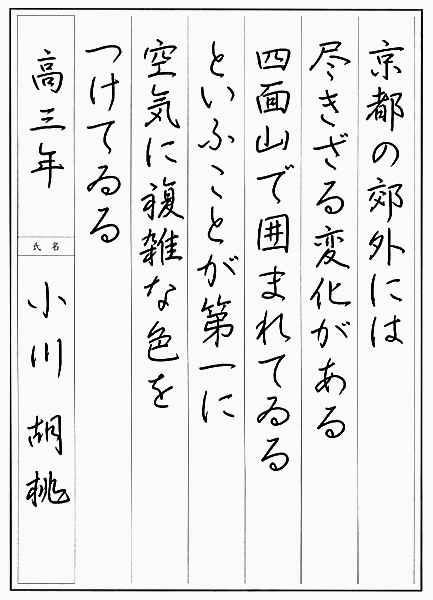 京都の郊外には
尽きざる変化がある
四面山で囲まれてゐる
といふことが第一に
空気に複雑な色を
つけてゐる
高三年
氏名
小川 胡桃